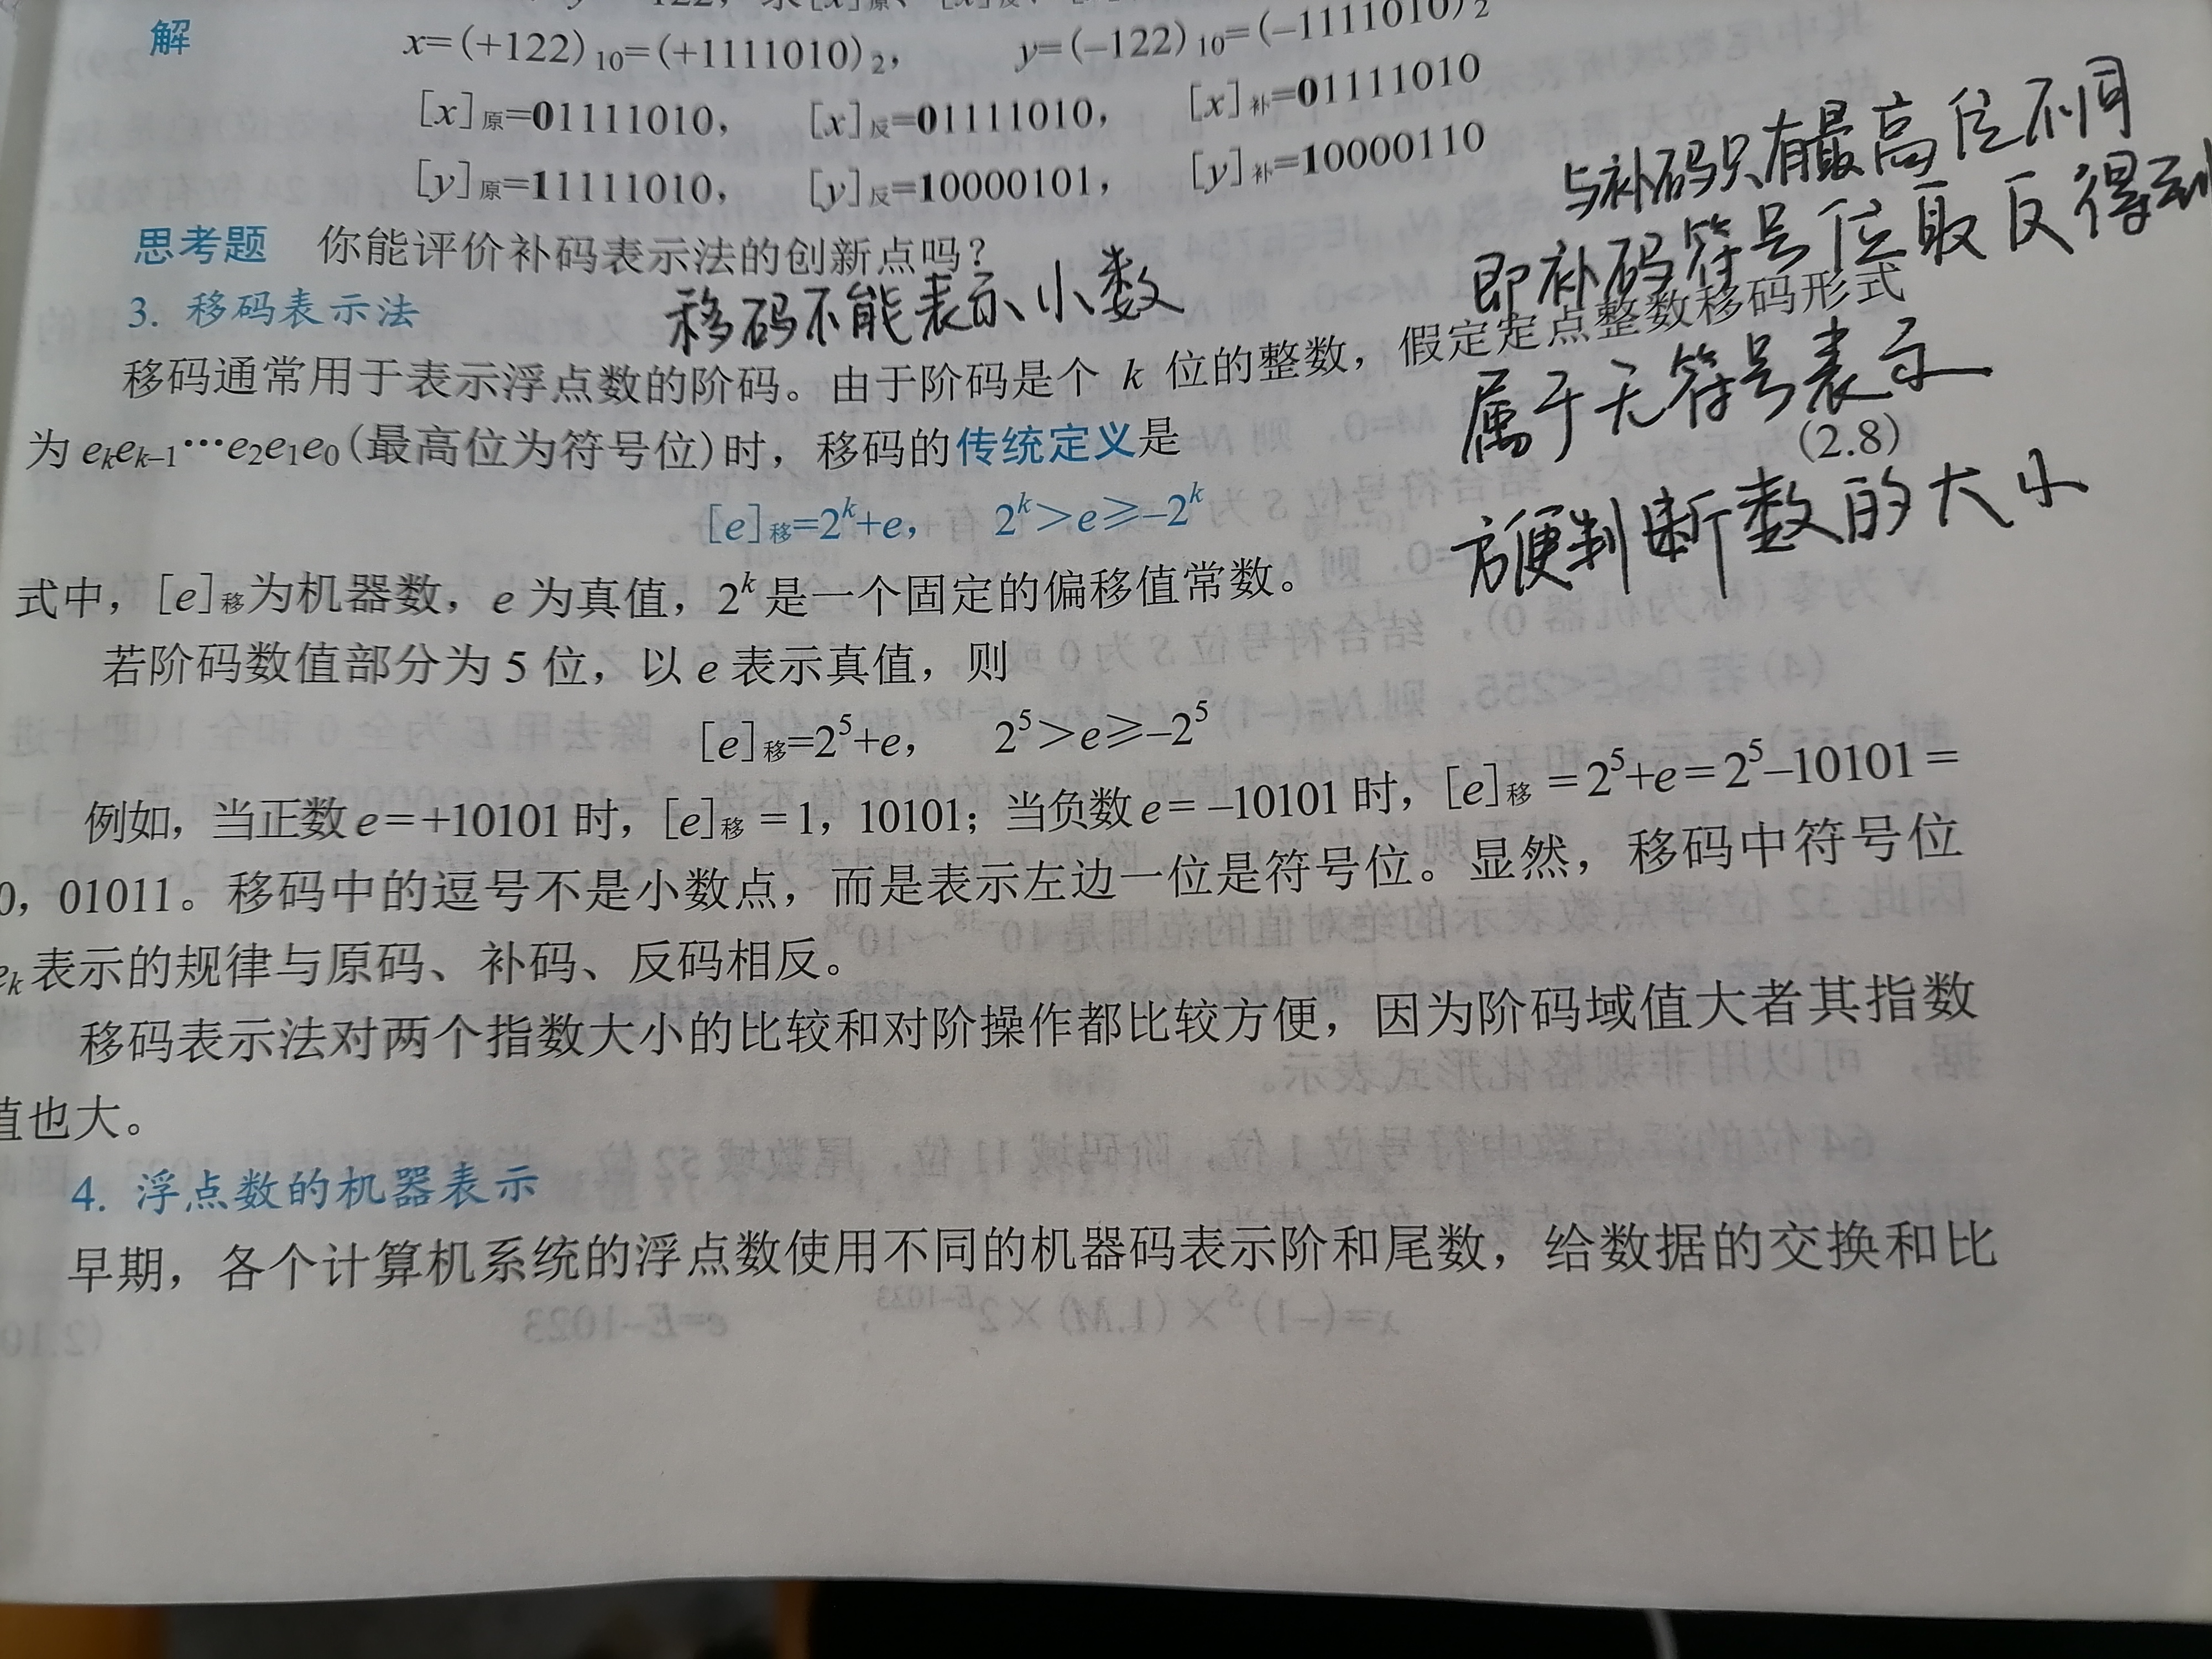 解
x=(+122)₁₀=(+1111010)₂, y=(–122)₁₀=(–1111010)₂
[x]原=01111010, [x]反=01111010, [x]补=01111010
[y]原=11111010, [y]反=10000101, [y]补=10000110
与补码只有最高位不同
即补码符号位取反得到
思考题 你能评价补码表示法的创新点吗?
3. 移码表示法
移码不能表示小数
移码通常用于表示浮点数的阶码。由于阶码是个 k 位的整数，假定定点整数移码形式
属于无符号表示
为 eₖeₖ₋₁⋯e₂e₁e₀(最高位为符号位)时，移码的传统定义是
[e]移=2ᵏ+e, 2ᵏ>e≥–2ᵏ (2.8)
方便判断数的大小
式中，[e]移为机器数，e 为真值，2ᵏ是一个固定的偏移值常数。
若阶码数值部分为 5 位，以 e 表示真值，则
[e]移=2⁵+e, 2⁵>e≥–2⁵
例如，当正数 e=+10101 时，[e]移=1，10101；当负数 e=–10101 时，[e]移=2⁵+e=2⁵–10101=
0，01011。移码中的逗号不是小数点，而是表示左边一位是符号位。显然，移码中符号位
eₖ表示的规律与原码、补码、反码相反。
移码表示法对两个指数大小的比较和对阶操作都比较方便，因为阶码域值大者其指数
值也大。
4. 浮点数的机器表示
早期，各个计算机系统的浮点数使用不同的机器码表示阶和尾数，给数据的交换和比